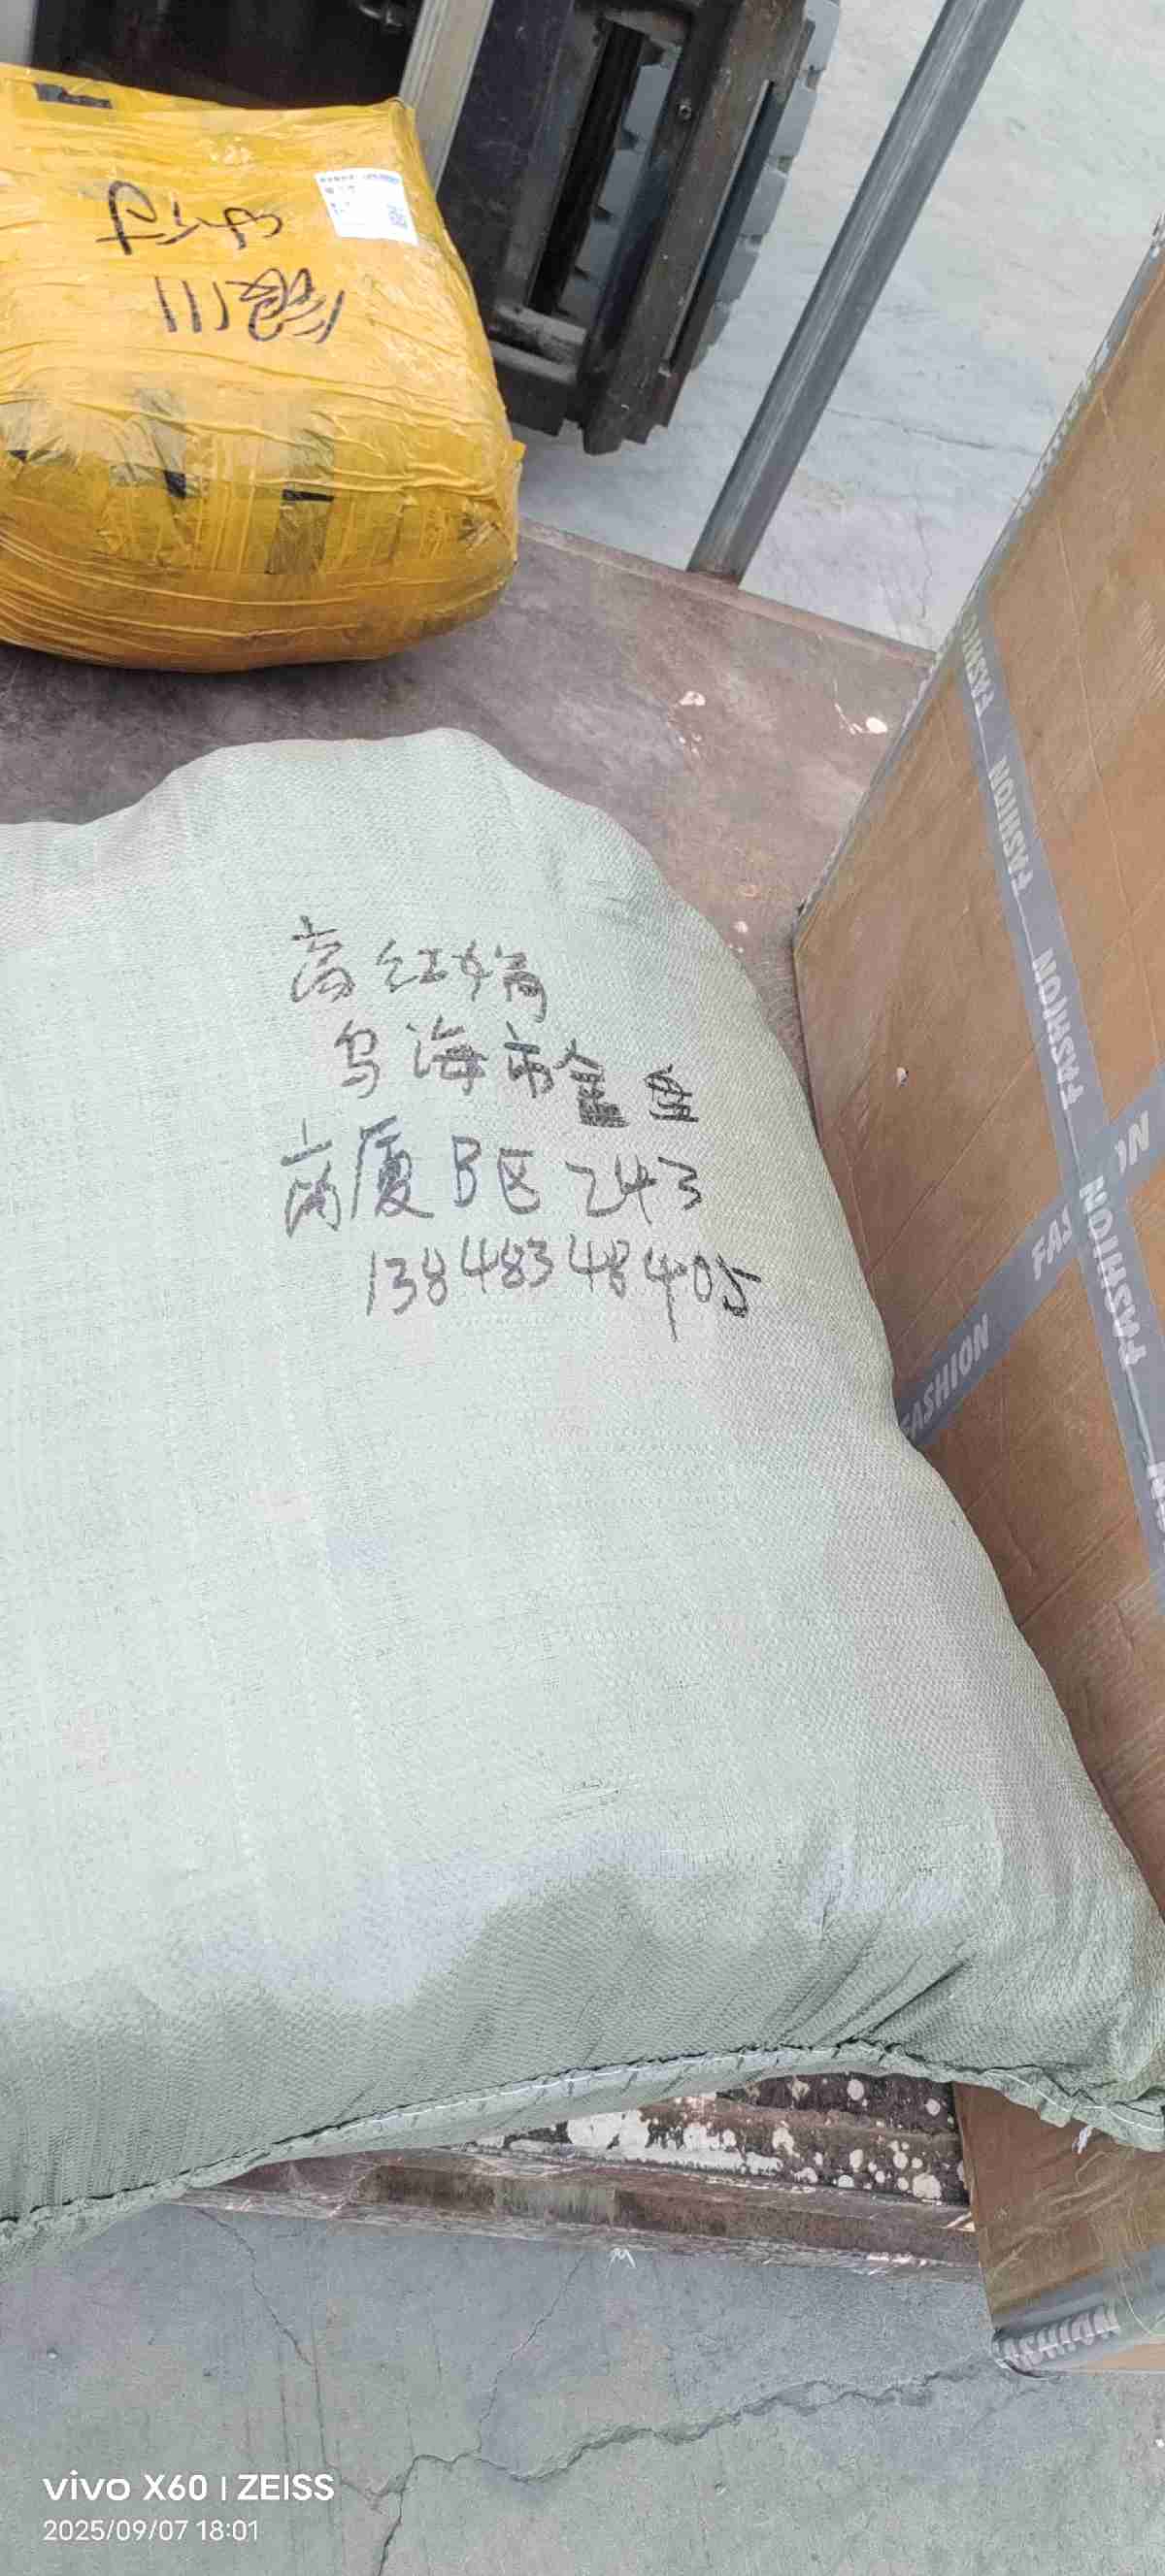 银川
高红娟
乌海市金鱼
商厦B区243
13848348405
FASHION
FASHION
FASHION
FASHION
FASHION
FASHION
vivo X60 | ZEISS
2025/09/07 18:01